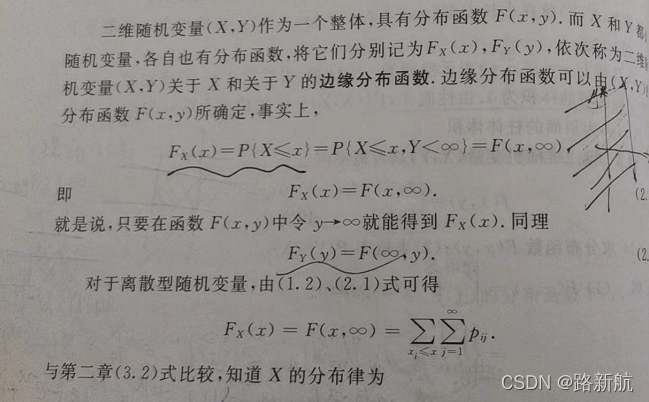 二维随机变量(X,Y)作为一个整体,具有分布函数 F(x,y). 而 X 和 Y 都
随机变量,各自也有分布函数,将它们分别记为 F_X(x),F_Y(y),依次称为二维
机变量(X,Y)关于 X 和关于 Y 的边缘分布函数. 边缘分布函数可以由(X,Y)
分布函数 F(x,y)所确定,事实上,
F_X(x)=P{X≤x}=P{X≤x,Y<∞}=F(x,∞)
即 F_X(x)=F(x,∞). (2.
就是说,只要在函数 F(x,y)中令 y→∞就能得到 F_X(x). 同理
F_Y(y)=F(∞,y). (2.
对于离散型随机变量,由(1.2)、(2.1)式可得
F_X(x) = F(x,∞) = ∑_{x_i≤x} ∑_{j=1}^{∞} p_{ij}.
与第二章(3.2)式比较,知道 X 的分布律为
CSDN @路新航